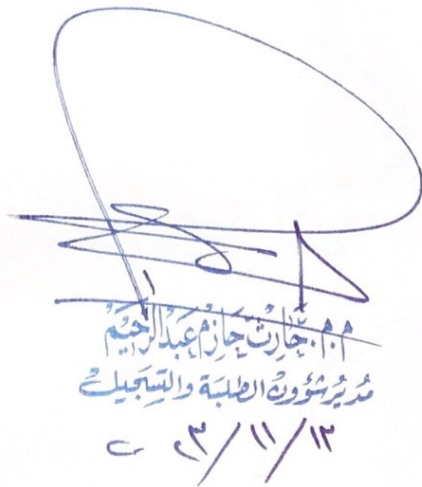 م.م. حارث حازم عبدالرحيم
مدير شؤون الطلبة والتسجيل
١٣/١١/٢٣